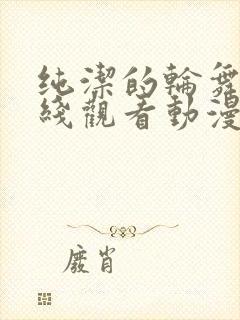 纯潔的輪舞
綫觀看動漫
廢肖